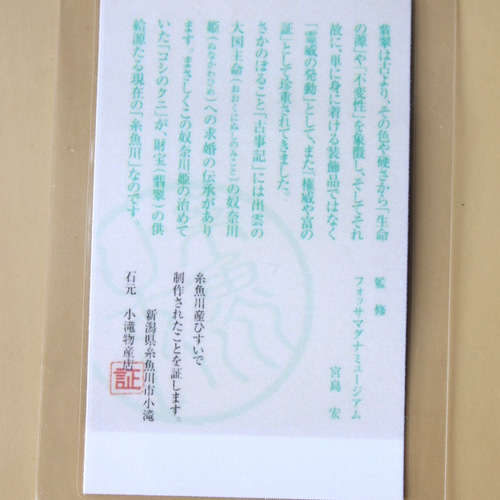 翡翠は古より、その色や硬さから「生命
の源」や「不変性」を象徴し、そしてそれ
故に、単に身に着ける装飾品ではなく
「霊威の発動」として、また「権威や富の
証」として珍重されてきました。
さかのぼること「古事記」には出雲の
大国主命(おおくにぬしのみこと)の奴奈川
姫(ぬながわひめ)への求婚の伝承があり
ます。まさしくこの奴奈川姫の治めて
いた「コシのクニ」が、財宝(翡翠)の供
給源たる現在の「糸魚川」なのです
監修
フォッサマグナミュージアム
宮島 宏
糸魚川産ひすいで
制作されたことを証します。
新潟県糸魚川市小滝
石元 小滝物産店
証